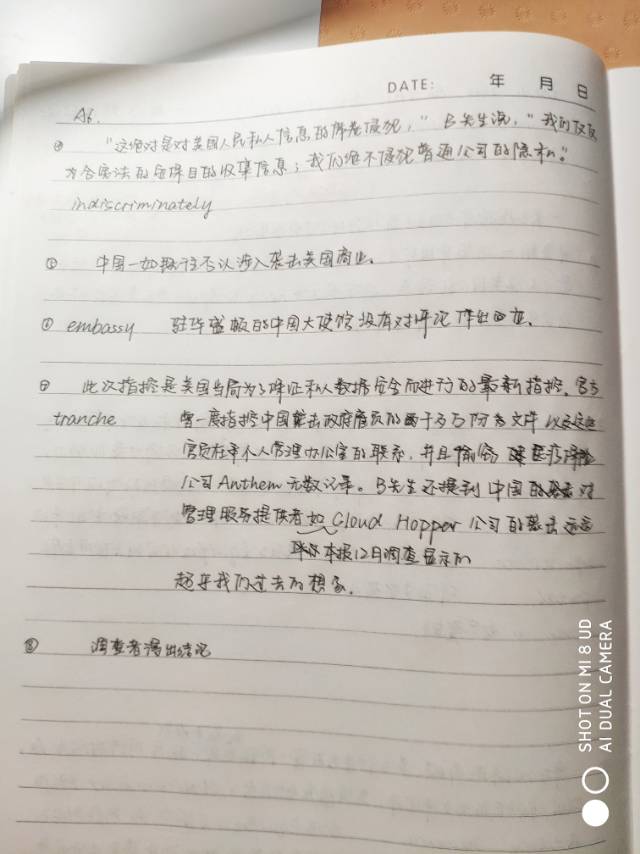 DATE: 年 月 日
A6.
"这绝对是对美国人民私人信息的肆意侵犯," B先生说, "我们仅仅
为合宪法的 目的收集信息; 我们绝不侵犯普通公司的隐私。"
indiscriminately
中国一如既往否认涉入袭击美国商业。
embassy 驻华盛顿的中国大使馆没有对评论作出回应。
此次指控是美国当局为了保证私人数据安全而进行的最新指控。官方
tranche 曾一度指控中国袭击政府雇员的两千多万份 文件 以及这些
官员在 个人管理办公室的联系, 并且偷窃 医疗保险
公司 Anthem 无数记录。B先生还提到中国的 对
管理服务提供者如 Cloud Hopper 公司的袭击远远
本报12月调查显示的
超乎我们过去的想象。
调查者得出结论
SHOT ON MI 8 UD
AI DUAL CAMERA